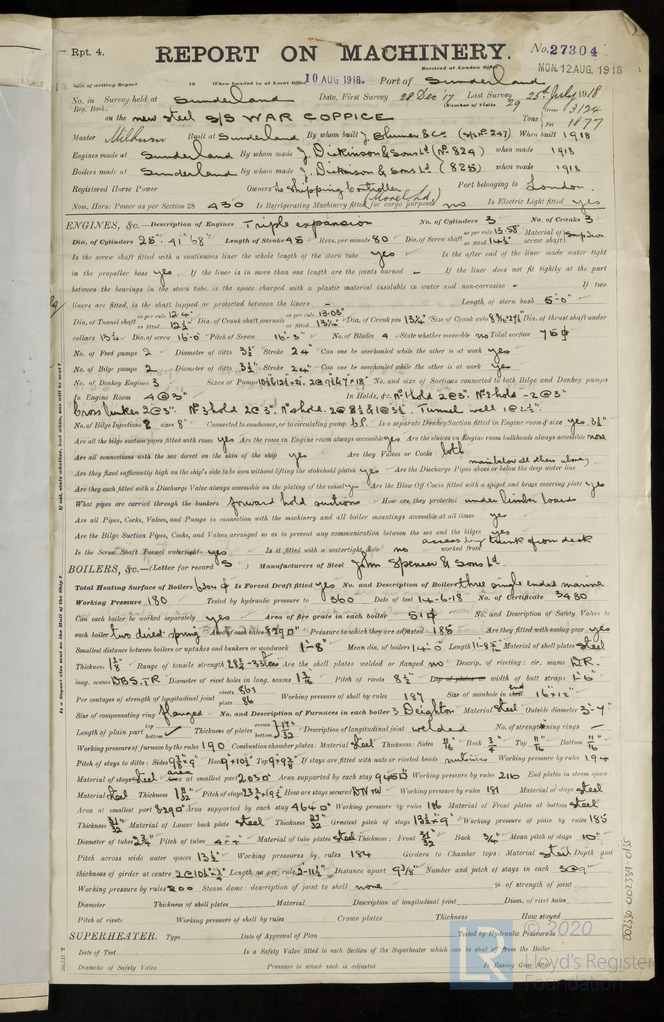 Rpt. 4. REPORT ON MACHINERY. No. 27304
Received at London Office MON. 12 AUG. 1918
Date of writing Report 19 When handed in at Local Office 10 AUG 1918. Port of Sunderland
No. in Survey held at Sunderland Date, First Survey 28 Dec '17 25th July 1918
Reg. Book. (Number of Visits 29
on the new steel S/S WAR COPPICE Tons Gross 3124 Net 1877
Master Milburn Built at Sunderland By whom built J. Blumer & Co (S/S No 247) When built 1918
Engines made at Sunderland By whom made J. Dickinson & Sons Ld (No 824) when made 1918
Boilers made at Sunderland By whom made J. Dickinson & Sons Ld (825) when made 1918
Registered Horse Power Owners The Shipping Controller Port belonging to London
Nom. Horse Power as per Section 28 430 Is Refrigerating Machinery fitted for cargo purposes no Is Electric Light fitted yes
ENGINES, &c.—Description of Engines Triple expansion No. of Cylinders 3 No. of Cranks 3
Dia. of Cylinders 25" 41" 68" Length of Stroke 45 Revs. per minute 80 Dia. of Screw shaft as per rule 13.58" as fitted 14½" Material of screw shaft
Is the screw shaft fitted with a continuous liner the whole length of the stern tube yes Is the after end of the liner made water tight
in the propeller boss yes If the liner is in more than one length are the joints burned - If the liner does not fit tightly at the part
between the bearings in the stern tube, is the space charged with a plastic material insoluble in water and non-corrosive - If two
liners are fitted, is the shaft lapped or protected between the liners - Length of stern bush 5'-0"
Dia. of Tunnel shaft as per rule 12.4" as fitted 12½" Dia. of Crank shaft journals as per rule 13.03" as fitted 13¼" Dia. of Crank pin 13¼" Size of Crank webs Dia. of thrust shaft under
collars 13½ Dia. of screw 16'-0" Pitch of Screw 16'-3" No. of Blades 4 State whether moveable no Total surface 75
No. of Feed pumps 2 Diameter of ditto 3½ Stroke 24" Can one be overhauled while the other is at work yes
No. of Bilge pumps 2 Diameter of ditto 3½ Stroke 24" Can one be overhauled while the other is at work yes
No. of Donkey Engines 3 Sizes of Pumps No. and size of Suctions connected to both Bilge and Donkey pumps
In Engine Room 4 @ 3" In Holds, &c. No 1 hold 2 @ 3". No 2 hold - 2 @ 3"
Cross bunker 2 @ 3". No 3 hold 2 @ 3". No 4 hold. Tunnel well 1 @ 2½"
No. of Bilge Injections sizes 8" Connected to condenser, or to circulating pump C.P. Is a separate Donkey Suction fitted in Engine room & size yes 3½"
Are all the bilge suction pipes fitted with roses yes Are the roses in Engine room always accessible yes Are the sluices on Engine room bulkheads always accessible none
Are all connections with the sea direct on the skin of the ship yes Are they Valves or Cocks both
Are they fixed sufficiently high on the ship's side to be seen without lifting the stokehold plates yes Are the Discharge Pipes above or below the deep water line main below all others above
Are they each fitted with a Discharge Valve always accessible on the plating of the vessel yes Are the Blow Off Cocks fitted with a spigot and brass covering plate yes
What pipes are carried through the bunkers forward hold suctions How are they protected under limber boards
Are all Pipes, Cocks, Valves, and Pumps in connection with the machinery and all boiler mountings accessible at all times yes
Are the Bilge Suction Pipes, Cocks, and Valves arranged so as to prevent any communication between the sea and the bilges yes
Is the Screw Shaft Tunnel watertight yes Is it fitted with a watertight door no worked from access by trunk from deck
BOILERS, &c.—(Letter for record S) Manufacturers of Steel John Spencer & Sons Ld
Total Heating Surface of Boilers Is Forced Draft fitted yes No. and Description of Boilers three single ended marine
Working Pressure 180 Tested by hydraulic pressure to 360 Date of test 14-6-18 No. of Certificate 3480
Can each boiler be worked separately yes Area of fire grate in each boiler 51 No. and Description of Safety Valves to
each boiler two direct spring Area of each valve Pressure to which they are adjusted 185 Are they fitted with easing gear yes
Smallest distance between boilers or uptakes and bunkers or woodwork 1'-8" Mean dia. of boilers 14'-0 Length Material of shell plates Steel
Thickness 1⅛" Range of tensile strength 28½-33 tons Are the shell plates welded or flanged no Descrip. of riveting: cir. seams D.R.
long. seams DBS.TR Diameter of rivet holes in long. seams Pitch of rivets 8½" Lap of plates or width of butt straps 1'-6"
Per centages of strength of longitudinal joint rivets plate 86 Working pressure of shell by rules 187 Size of manhole in shell end 16" x 12"
Size of compensating ring flanged No. and Description of Furnaces in each boiler 3 Deighton Material Steel Outside diameter 3'-7"
Length of plain part top bottom Thickness of plates crown bottom Description of longitudinal joint welded No. of strengthening rings
Working pressure of furnace by the rules 190 Combustion chamber plates: Material Steel Thickness: Sides 11/16" Back ¾" Top 11/16" Bottom 11/16"
Pitch of stays to ditto: Sides Back Top If stays are fitted with nuts or riveted heads nuts Working pressure by rules 194
Material of stays Steel area at smallest part Area supported by each stay Working pressure by rules End plates in steam space:
Material Steel Thickness Pitch of stays How are stays secured Working pressure by rules 181 Material of stays steel
Area at smallest part Area supported by each stay Working pressure by rules 186 Material of Front plates at bottom steel
Thickness 31/32 Material of Lower back plate steel Thickness 27/32 Greatest pitch of stays Working pressure of plate by rules 185
Diameter of tubes 2¾" Pitch of tubes Material of tube plates steel Thickness: Front 31/32 Back ¾" Mean pitch of stays 10"
Pitch across wide water spaces 13½" Working pressures by rules 184 Girders to Chamber tops: Material steel Depth and
thickness of girder at centre Length as per rule 2'-11½" Distance apart 9⅜" Number and pitch of stays in each
Working pressure by rules 200 Steam dome: description of joint to shell none % of strength of joint
Diameter Thickness of shell plates Material Description of longitudinal joint Diam. of rivet holes
Pitch of rivets Working pressure of shell by rules Crown plates Thickness How stayed
SUPERHEATER. Type Date of Approval of Plan Tested by Hydraulic Pressure to
Date of Test Is a Safety Valve fitted to each Section of the Superheater which can be shut off from the Boiler
Diameter of Safety Valve Pressure to which each is adjusted Is Easing Gear fitted
© 2020
LR Lloyd's Register
Foundation
002330-002339-0155